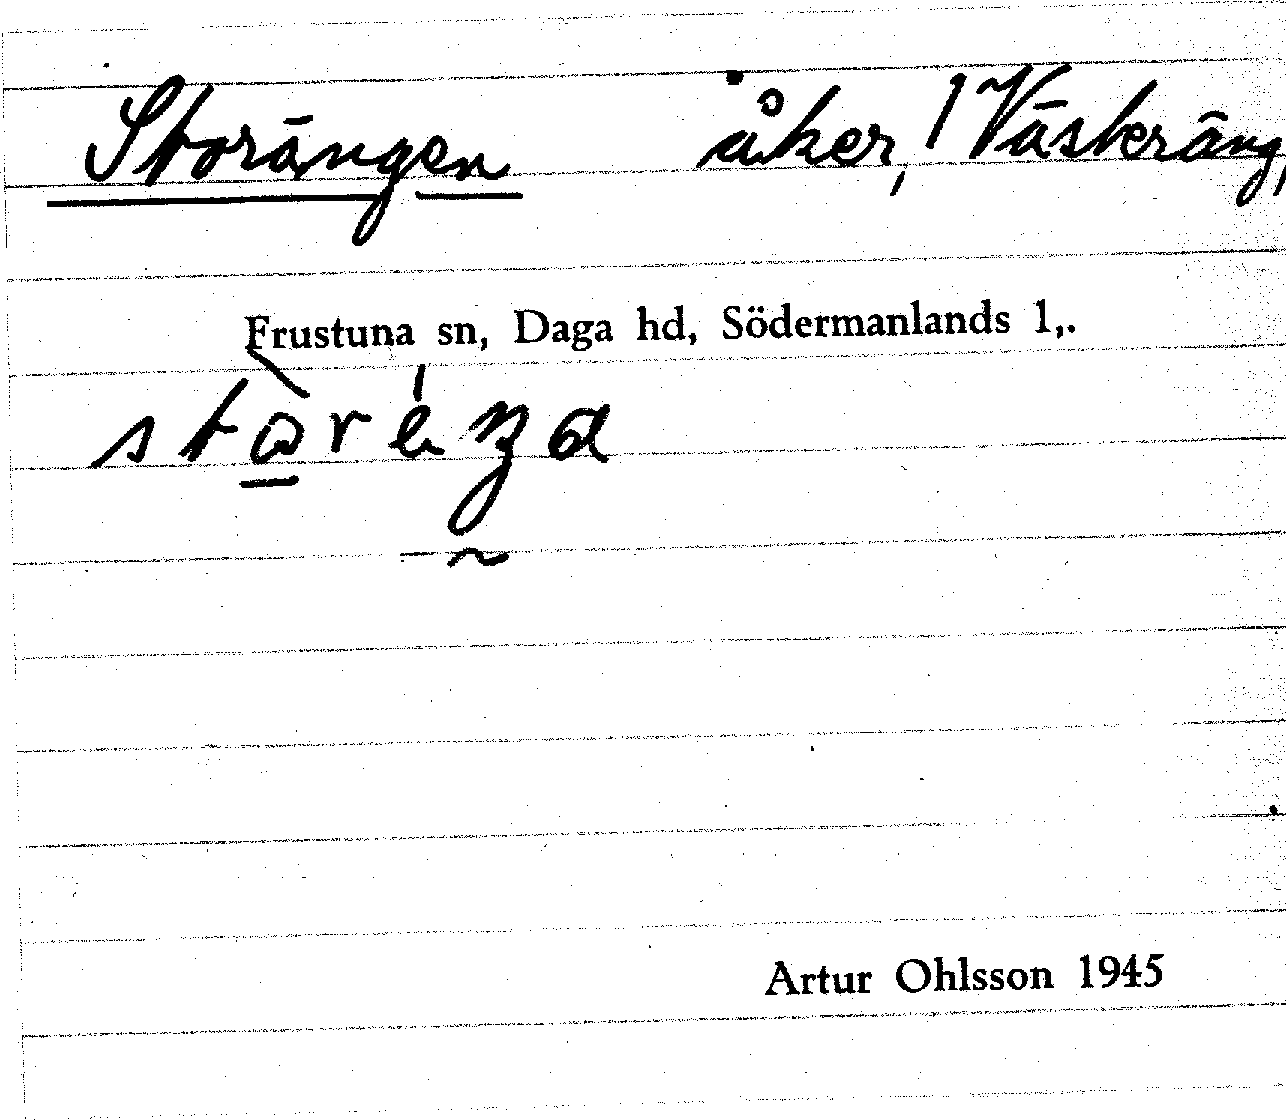 Storängen åker, 1 Västeräng,
Frustuna sn, Daga hd, Södermanlands l,.
Artur Ohlsson 1945